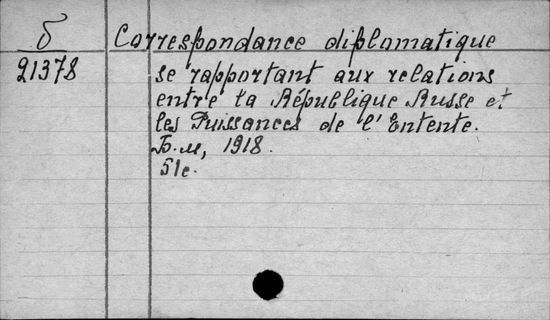 б Correspondance diplomatique
21378 se rapportant aux relations
entre la République Russe et
les Puissances de l'Entente.
Б.м, 1918.
51c.